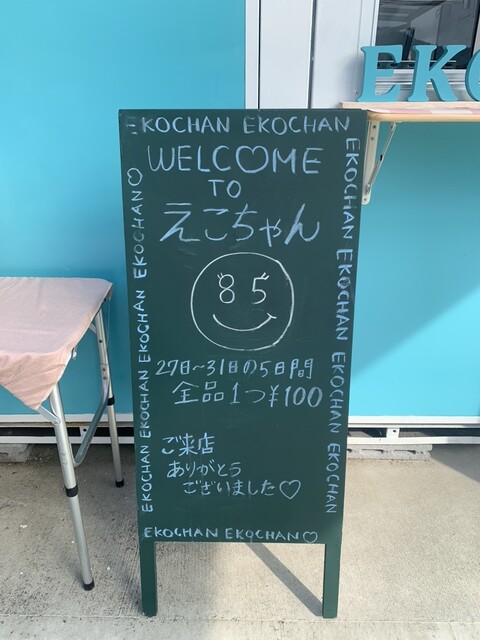 EKO
EKOCHAN EKOCHAN
WELC♡ME
TO
えこちゃん
85
27日〜31日の5日間
全品1つ¥100
ご来店
ありがとう
ございました♡
EKOCHAN EKOCHAN EKOCHAN EKOCHAN♡
EKOCHAN EKOCHAN EKOCHAN EKOCHAN
EKOCHAN EKOCHAN♡